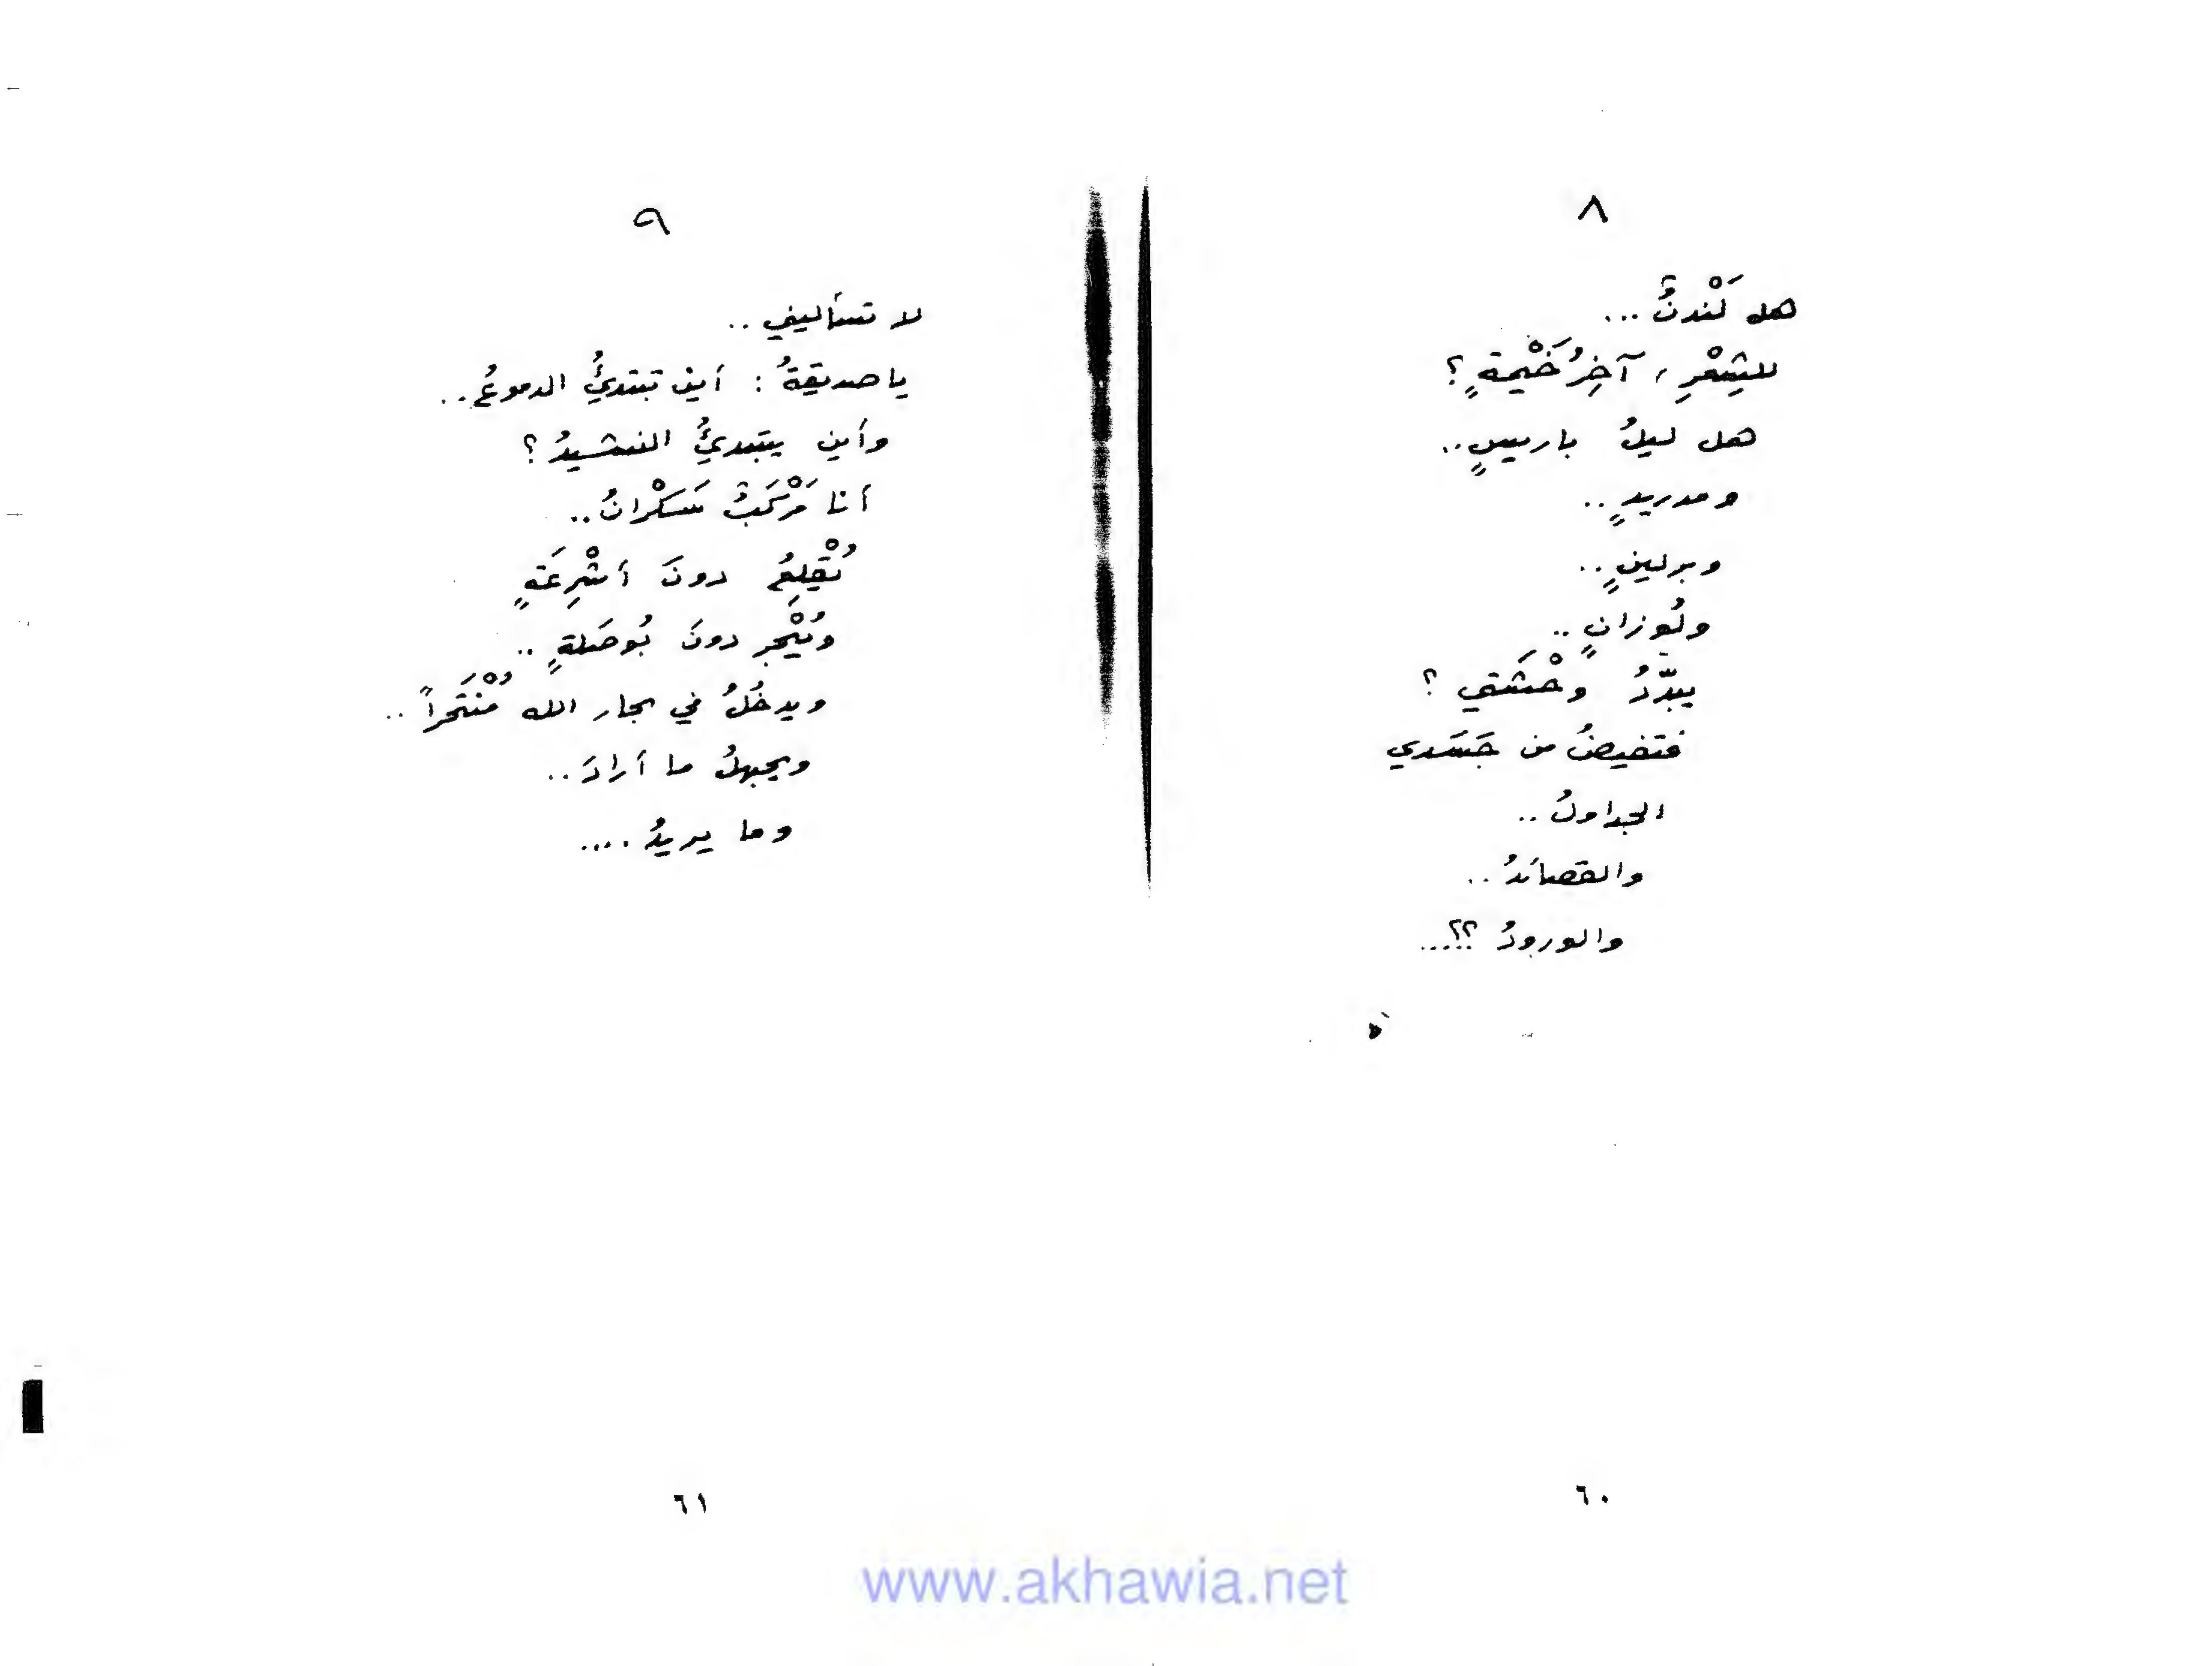 ٨
هل لَنْدنُ ...
للشِعْرِ ، آخِرُ خَيْمةٍ ؟
هل ليلُ باريسٍ ..
ومدريدٍ ..
وبرلينٍ ..
ولُوزانٍ ..
يبدّدُ وحْشَتي ؟
فتفيضُ من جَسَدي
الجداولُ ..
والقصائدُ ..
والورودُ ؟؟ ....
٦٠
٩
لا تسأليني ..
يا صديقةُ : أين تبتدئُ الدموعُ ..
وأين يبتدئُ النشيدُ ؟
أنا مَرْكَبٌ سَكْرانُ ..
يُقْلِعُ دونَ أشْرِعَةٍ
ويُبْحِر دونَ بُوصَلةٍ ..
ويدخُلُ في بحار الله مُنْتَحراً ..
ويجهلُ ما أرادَ ..
وما يريدُ ....
٦١
www.akhawia.net